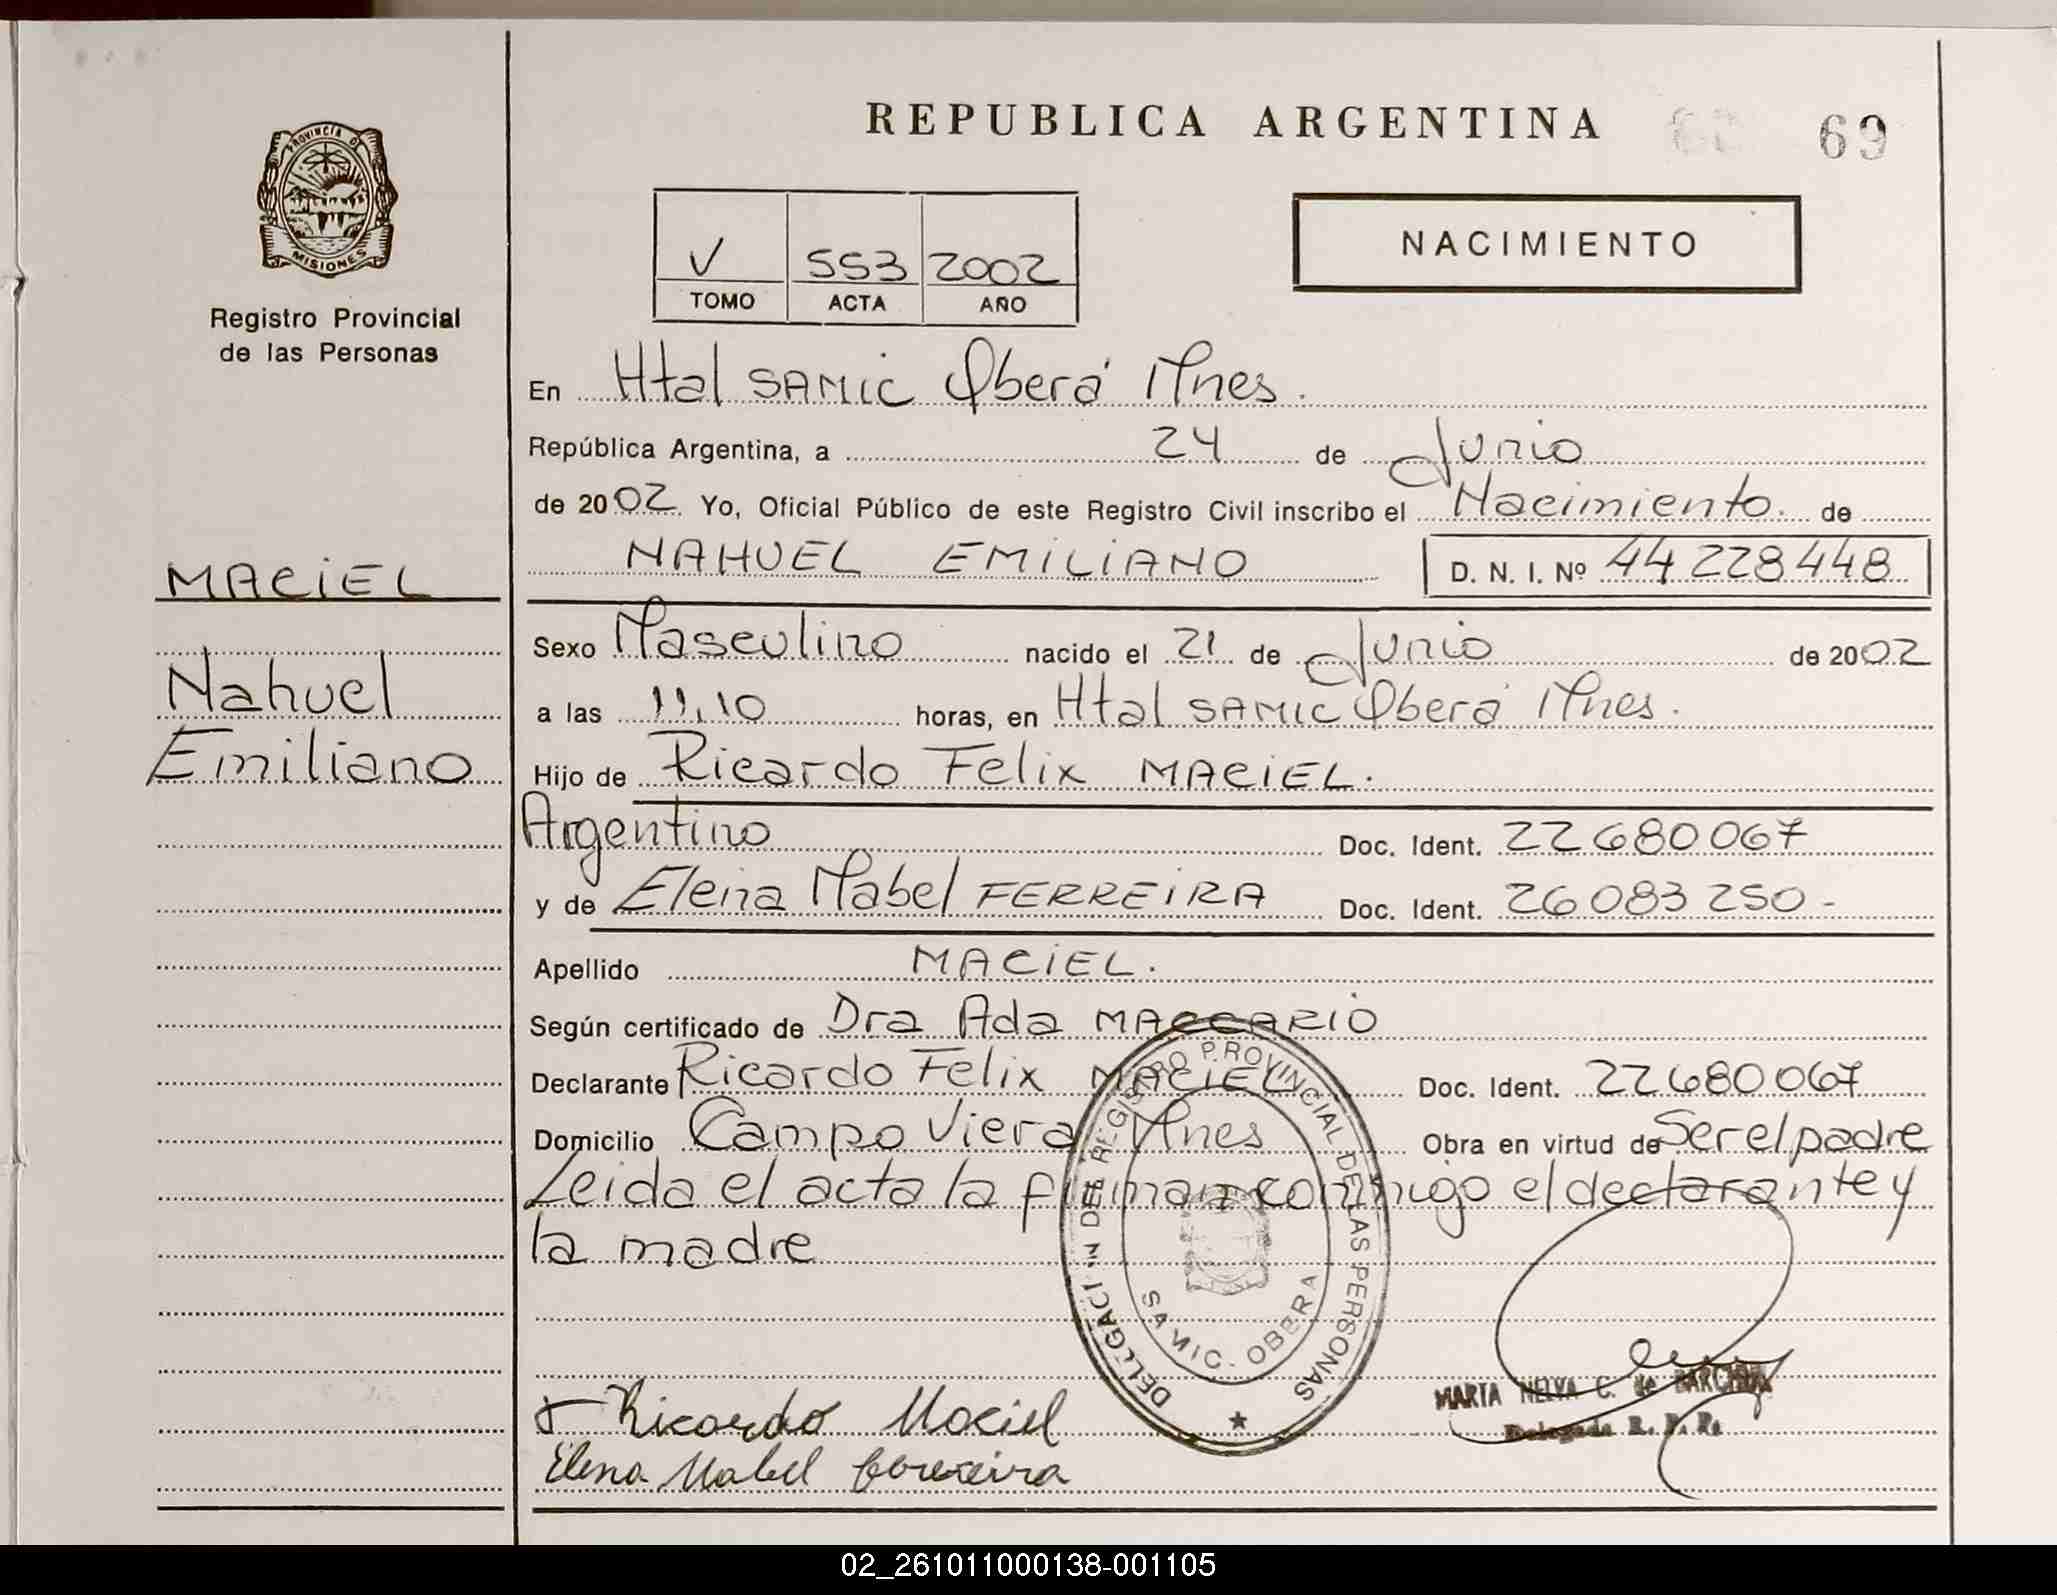 REPUBLICA ARGENTINA
69
PROVINCIA DE
MISIONES
Registro Provincial
de las Personas
V 553 2002
TOMO ACTA AÑO
NACIMIENTO
En Htal SAMIC Oberá Mnes.
República Argentina, a 24 de Junio
de 2002 Yo, Oficial Público de este Registro Civil inscribo el Nacimiento. de
NAHUEL EMILIANO D. N. I. Nº 44 228 448
MACIEL
Nahuel
Emiliano
Sexo Masculino nacido el 21 de Junio de 2002
a las 11,10 horas, en Htal SAMIC Oberá Mnes.
Hijo de Ricardo Felix MACIEL.
Argentino Doc. Ident. 22 680 067
y de Elena Mabel FERREIRA Doc. Ident. 26 083 250-
Apellido MACIEL.
Según certificado de Dra Ada MACCARIO
Declarante Ricardo Felix MACIEL Doc. Ident. 22 680 067
Domicilio Campo Viera Mnes Obra en virtud de Ser el padre
Leida el acta la firman conmigo el declarante y
la madre
DELEGACI N DEL REGISTRO PROVINCIAL DE LAS PERSONAS
SAMIC. OBERA
Ricardo Maciel
Elena Mabel Ferreira
MARIA NELVA C. de
Delegada R. P. P.
02_261011000138-001105